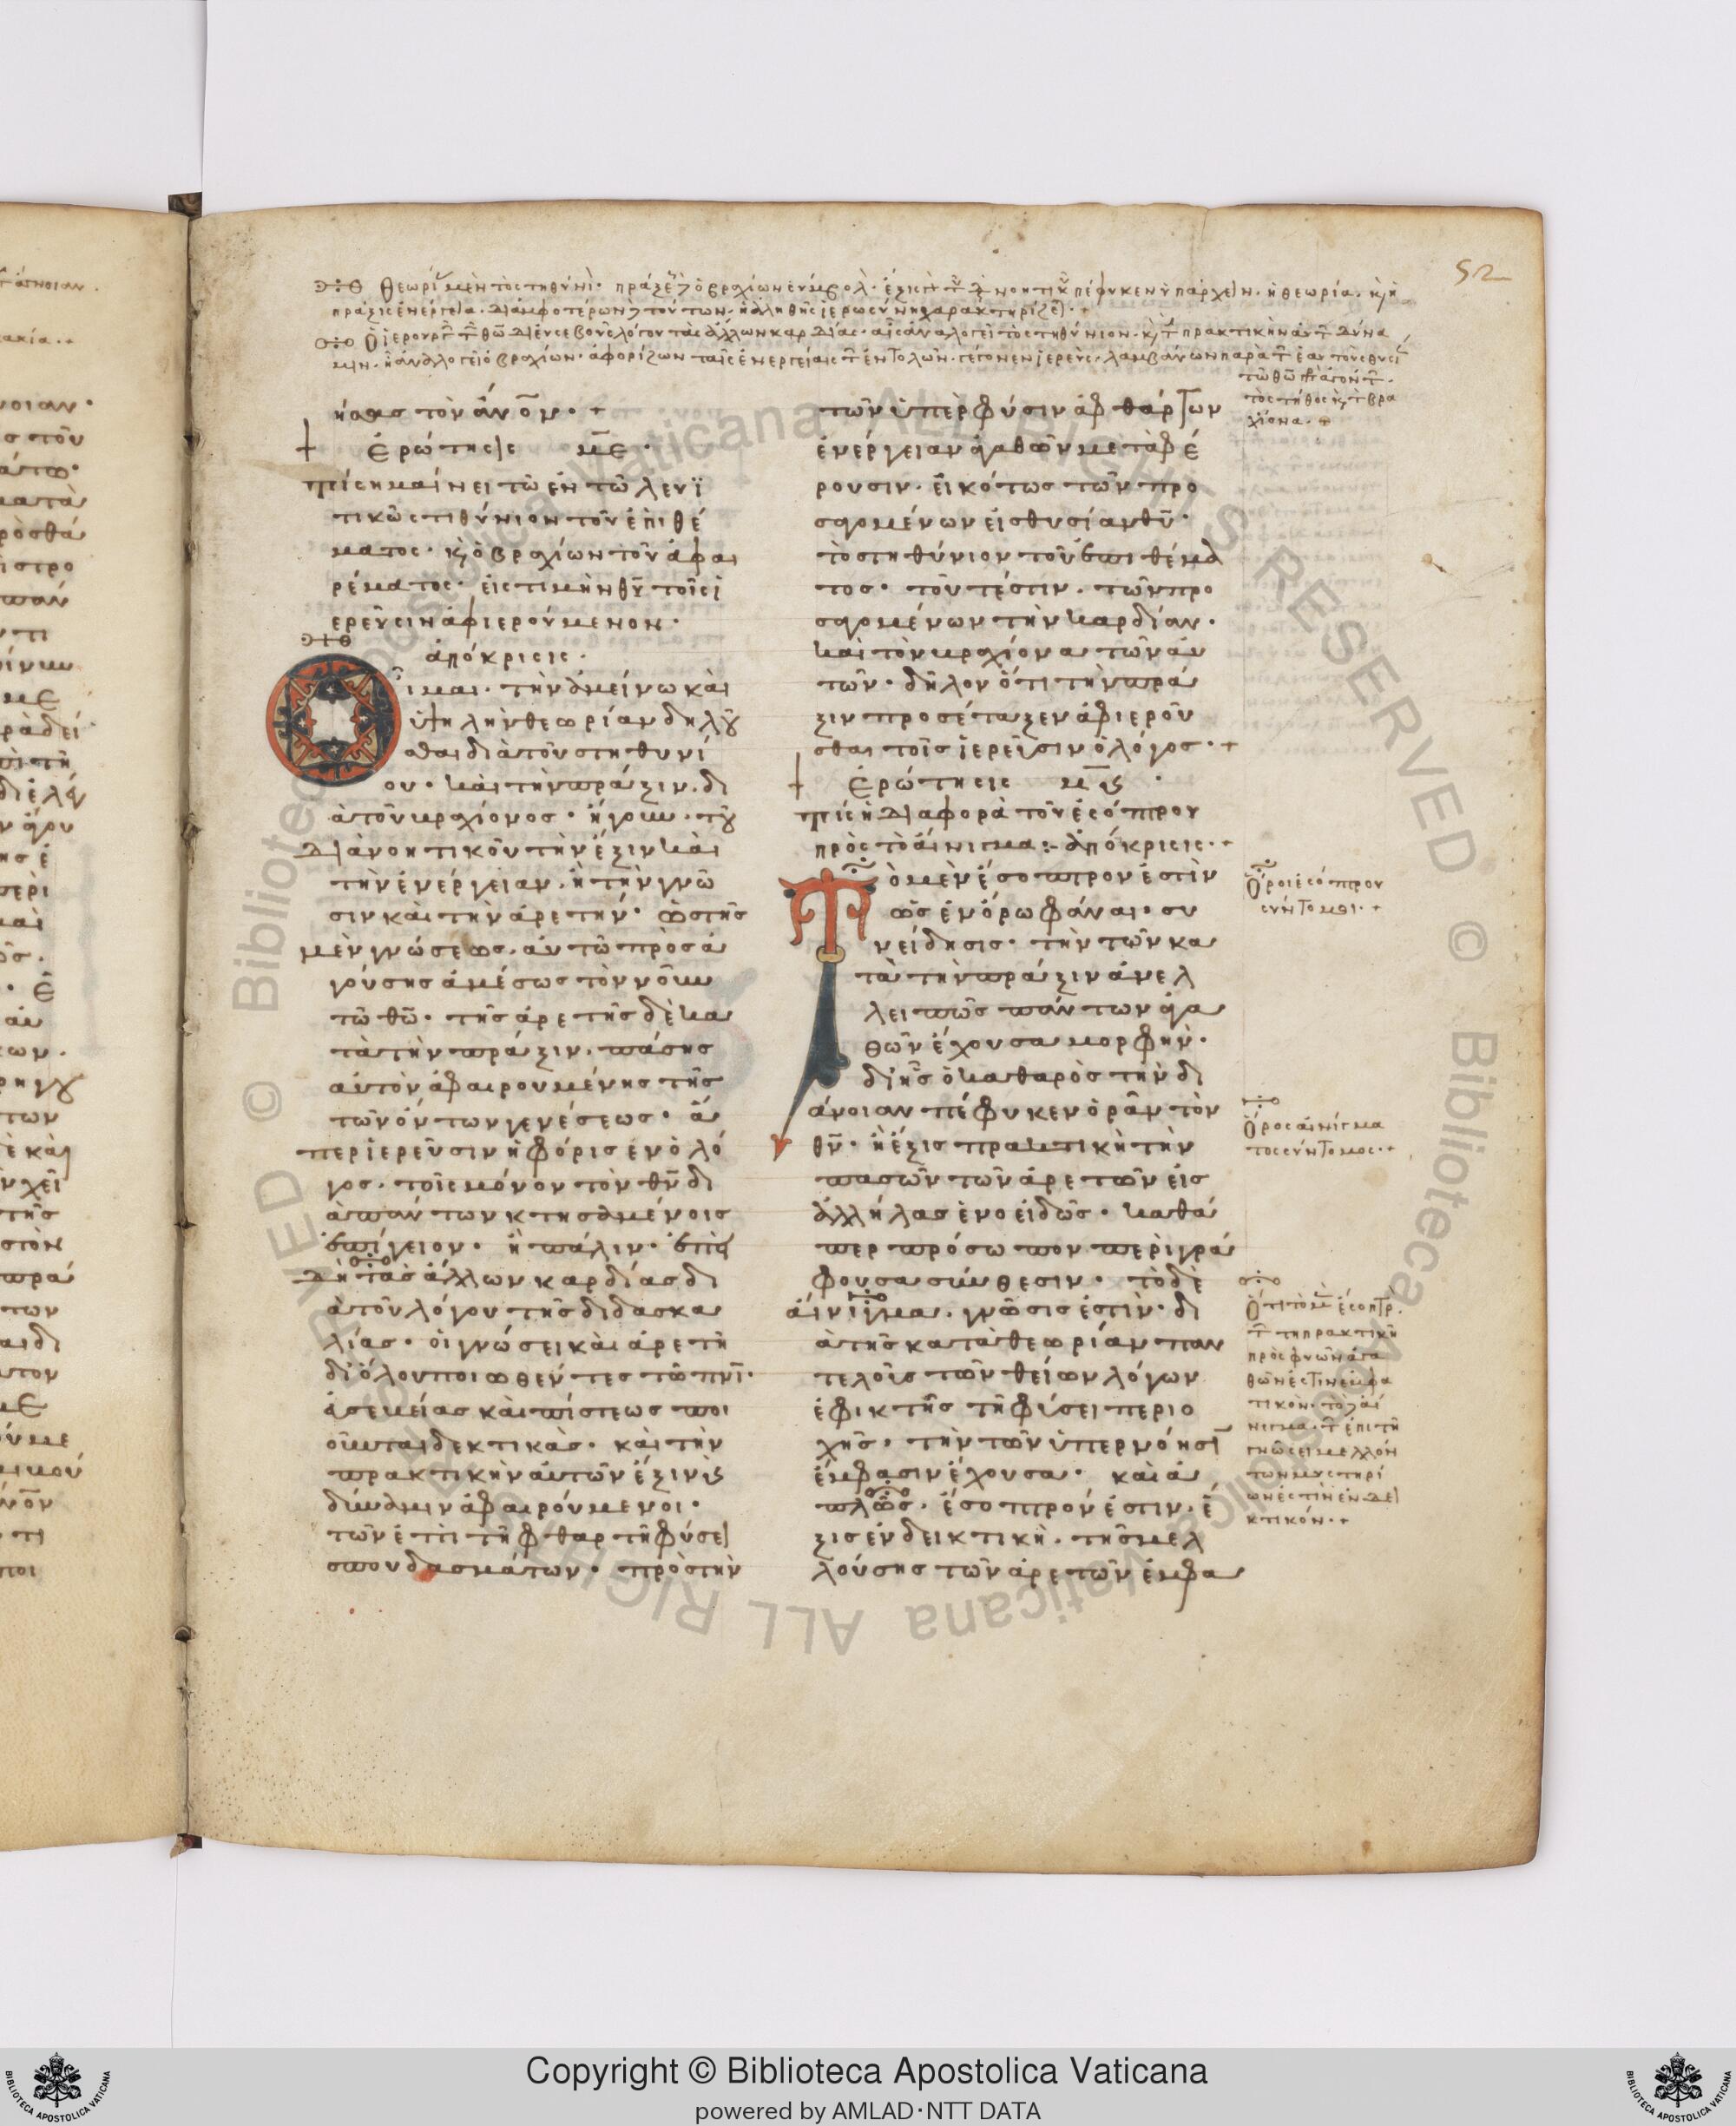 52
Θεωρί μὲν τὸ στηθύνι· πράξε δὲ ὁ βραχίων σύμβολ· ἕξις διανοητικ πέφυκεν ὑπάρχειν ἡ θεωρία· κ ἡ
πρᾶξις ἐνέργεια· δι ἀμφοτέρων δ τούτων, ἡ ἀληθὴς ἱερωσύνη χαρακτηρίζε·+
Ὁ ἱερουργ τ θῶ δι εὐσεβοῦς λόγου τὰς ἄλλων καρδίας· αἷς ἀναλογεῖ τὸ στηθύνιον· κ τ πρακτικὴν αὐτ δύνα
μιν· ἧ ἀναλογεῖ ὁ βραχίων· ἀφορίζων ταῖς ἐνεργείαις τ ἐντολῶν· γέγονεν ἱερεύς· λαμβάνων παρὰ τ ἑαυτοὺς θυσί
τῶ θῶ προσαγόντ·
τὸ στῆθος κ τ βρα
χίονα·+
ήσας τὸν ἄνον·+
Ἐρώτησις με·
τί σημαίνει τῶ ἐν τῶ λευϊ
τικῶ στιθύνιον τοῦ ἐπιθέ
ματος· κ ὁ βραχίων τοῦ ἀφαι
ρέματος· εἰς τιμὴν θυ τοῖς ἱ
ερεῦσιν ἀφιερούμενον·
ἀπόκρισις·
Οἶμαι· τὴν ἀμείνω καὶ
ὑψηλὴν θεωρίαν δηλοῦ
σθαι διὰ τοῦ στηθυνί
ου· καὶ τὴν πράξιν· δι
ὰ τοῦ βραχίονος· ἤγουν· τοῦ
διανοητικοῦ τὴν ἕξιν καὶ
τὴν ἐνέργειαν· ἢ τὴν γνῶ
σιν καὶ τὴν ἀρετήν· ὡς τῆς
μὲν γνώσεως· αὐτῶ προσα
γούσης ἀμέσως τὸν νοῦν
τῶ θῶ· τῆς ἀρετῆς δὲ κα
τὰ τὴν πράξιν· πάσης
αὐτὸν ἀφαιρουμένης τῆς
τῶν ὄντων γενέσεως· ἅ
περ ἱερεῦσιν ἠφόρισεν ὁ λό
γος· τοῖς μόνον τὸν θν δι
ὰ πάντων κτησαμένοις
ἐπίγειον· ἢ πάλιν· ἐπει
δὴ τὰς ἄλλων καρδίας δι
ὰ τοῦ λόγου τῆς διδασκα
λίας· οἱ γνώσει καὶ ἀρετῆ
δι ὅλου ποιωθέντες τῶ πνι·
εὐσεβείας καὶ πίστεως ποι
οῦνται δεκτικάς· καὶ τὴν
πρακτικὴν αὐτῶν ἕξιν κ
δύναμιν ἀφαιρούμενοι·
τῶν ἐπὶ τῆ φθαρτῆ φύσει
σπουδασμάτων· πρὸς τὴν
τῶν ὑπὲρ φύσιν ἀφθάρτων
ἐνέργειαν ἀγαθῶν μεταφέ
ρουσιν· εἰκότως τῶν προ
σαγομένων εἰς θυσίαν θυ·
τὸ στηθύνιον τοῦ ἐπιθέμα
τος· τουτέστιν· τῶν προ
σαγομένων τὴν καρδίαν·
καὶ τὸν βραχίονα τῶν αὐ
τῶν· δῆλον ὅτι τὴν πρά
ξιν προσέταξεν ἀφιεροῦ
σθαι τοῖς ἱερεῦσιν ὁ λόγος·+
Ἐρώτησις μς·
τίς ἡ διαφορὰ τοῦ ἐσόπτρου
πρὸς τὸ αἴνιγμα:- ἀπόκρισις·+
Τὸ μὲν ἔσοπτρον ἐστὶν
ὡς ἐν ὅρω φάναι· συ
νείδησις· τὴν τῶν κα
τὰ τὴν πράξιν ἀνελ
λειπῶς πάντων ἀγα
θῶν ἔχουσα μορφήν·
δι ῆς ὁ καθαρὸς τὴν δι
άνοιαν πέφυκεν ὁρᾶν τὸν
θν· ἢ ἕξις πρακτικὴ τὴν
πασῶν τῶν ἀρετῶν εἰς
ἀλλήλας ἑνοειδῶς· καθά
περ πρόσωπον περιγρά
φουσα σύνθεσιν· τὸ δὲ
αἴνιγμα· γνῶσις ἐστὶν· δι
ὰ τῆς κατὰ θεωρίαν παν
τελοῦς τῶν θείων λόγων
ἐφικτῆς τῆ φύσει περιο
χῆς· τὴν τῶν ὑπὲρ νόησι
ἔμφασιν ἔχουσα· καὶ ἁ
πλῶς· ἔσοπτρόν ἐστιν· ἕ
ξις ἐνδεικτική· τῆς μελ
λούσης τῶν ἀρετῶν ἐμφα
Ὅροι ἐσόπτρου
σύντομοι·+
Ὅρος αἰνίγμα
τος σύντομος·+
Ὅτι τὸ μ ἔσοπτρ·
τ τῆ πρακτικῆ
προσφυῶν ἀγα
θῶν ἐστὶν ἐμφα
τικόν· τὸ δ αἴ
νιγμα· τ ἐπὶ τῆ
γνώσει μελλόν
των μυστηρί
ων ἐστὶν ἐνδει
κτικόν·+
Copyright © Biblioteca Apostolica Vaticana
powered by AMLAD·NTT DATA